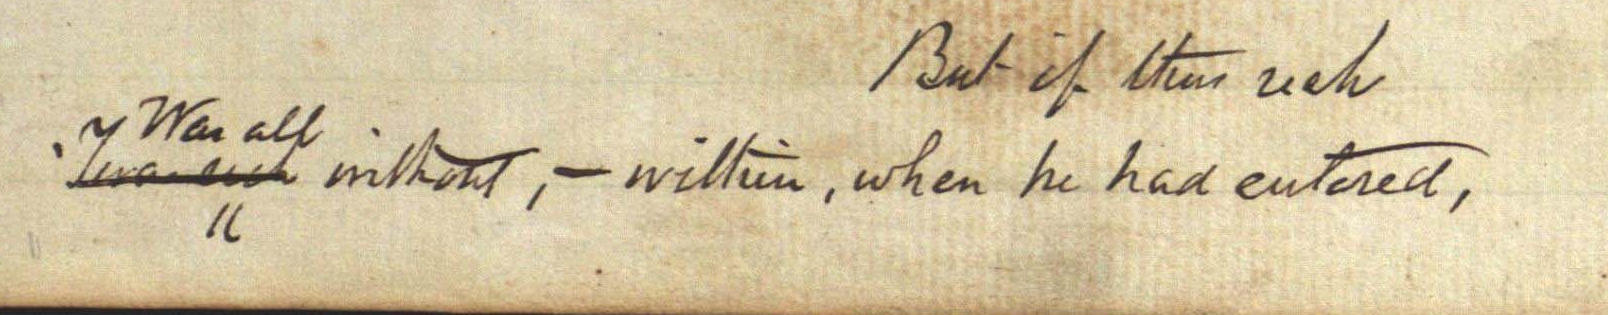 But if thus rich
Was all
Twas rich without, – within, when he had entered,